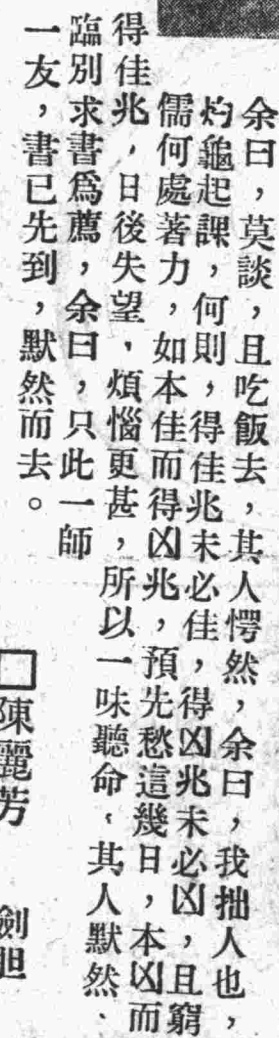 余曰，莫談，且吃飯去，其人愕然，余曰，我拙人也，
灼龜起課，何則，得佳兆未必佳，得凶兆未必凶，且窮
儒何處著力，如本佳而得凶兆，預先愁這幾日，本凶而
得佳兆，日後失望，煩惱更甚，所以一味聽命，其人默然、
臨別求書爲薦，余曰，只此一師
一友，書已先到，默然而去。
□陳麗芳　劍胆